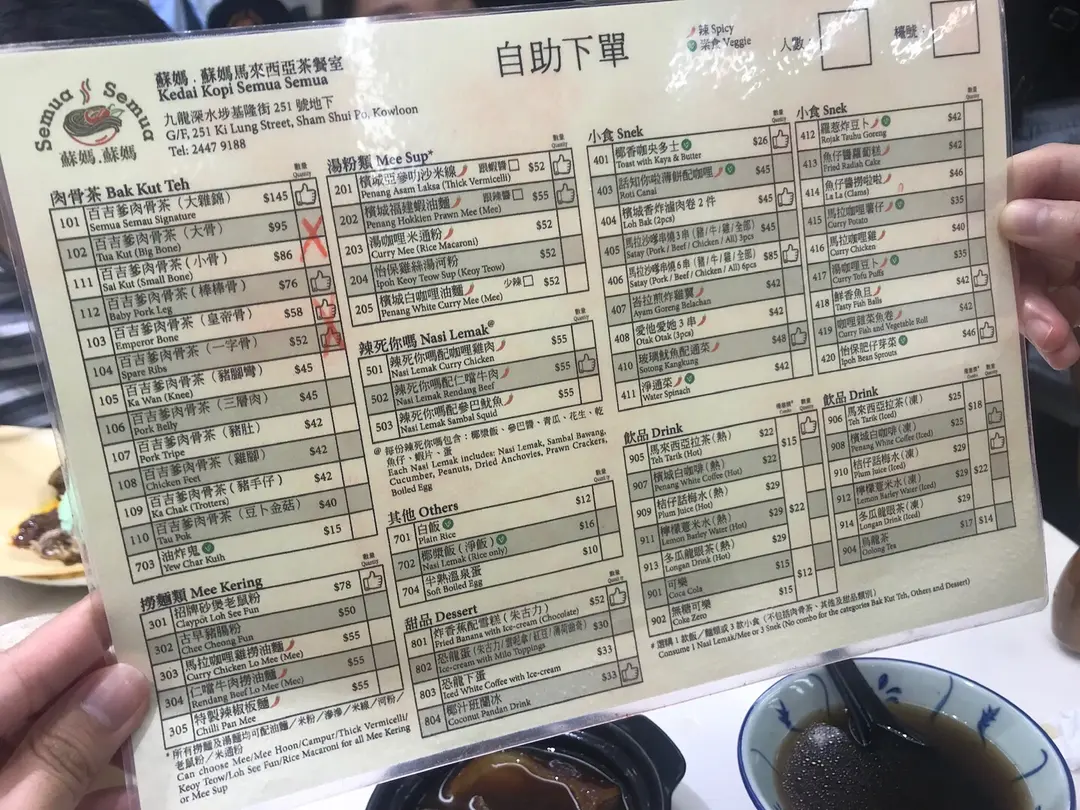 Semua Semua
蘇媽.蘇媽
蘇媽.蘇媽馬來西亞茶餐室
Kedai Kopi Semua Semua
九龍深水埗基隆街 251 號地下
G/F, 251 Ki Lung Street, Sham Shui Po, Kowloon
Tel: 2447 9188
自助下單
辣 Spicy
素食 Veggie
人數
檯號
肉骨茶 Bak Kut Teh
數量 Quantity
101 百吉爹肉骨茶（大雜錦） $145
Semua Semau Signature
102 百吉爹肉骨茶（大骨） $95
Tua Kut (Big Bone)
111 百吉爹肉骨茶（小骨） $86
Sai Kut (Small Bone)
112 百吉爹肉骨茶（棒棒骨） $76
Baby Pork Leg
103 百吉爹肉骨茶（皇帝骨） $58
Emperor Bone
104 百吉爹肉骨茶（一字骨） $52
Spare Ribs
105 百吉爹肉骨茶（豬腳彎） $45
Ka Wan (Knee)
106 百吉爹肉骨茶（三層肉） $45
Pork Belly
107 百吉爹肉骨茶（豬肚） $42
Pork Tripe
108 百吉爹肉骨茶（雞腳） $42
Chicken Feet
109 百吉爹肉骨茶（豬手仔） $42
Ka Chak (Trotters)
110 百吉爹肉骨茶（豆卜金菇） $40
Tau Pok
703 油炸鬼 $15
Yew Char Kuih
撈麵類 Mee Kering
數量 Quantity
301 招牌砂煲老鼠粉 $78
Claypot Loh See Fun
302 古早豬腸粉 $50
Chee Cheong Fun
303 馬拉咖喱雞撈油麵 $55
Curry Chicken Lo Mee (Mee)
304 仁噹牛肉撈油麵 $55
Rendang Beef Lo Mee (Mee)
305 特製辣椒板麵 $55
Chilli Pan Mee
* 所有撈麵及湯麵均可配油麵／米粉／滲滲／米線／河粉／
老鼠粉／米通粉
Can choose Mee/Mee Hoon/Campur/Thick Vermicelli/
Keoy Teow/Loh See Fun/Rice Macaroni for all Mee Kering
or Mee Sup
湯粉類 Mee Sup*
數量 Quantity
201 檳城亞參叻沙米線 跟蝦醬 $52
Penang Asam Laksa (Thick Vermicelli)
202 檳城福建蝦油麵 跟辣醬 $55
Penang Hokkien Prawn Mee (Mee)
203 湯咖哩米通粉 $52
Curry Mee (Rice Macaroni)
204 怡保雞絲湯河粉 $52
Ipoh Keoy Teow Sup (Keoy Teow)
205 檳城白咖哩油麵 少辣 $52
Penang White Curry Mee (Mee)
辣死你嗎 Nasi Lemak@
數量 Quantity
501 辣死你嗎配咖哩雞肉 $55
Nasi Lemak Curry Chicken
502 辣死你嗎配仁噹牛肉 $55
Nasi Lemak Rendang Beef
503 辣死你嗎配參巴魷魚 $55
Nasi Lemak Sambal Squid
@ 每份辣死你嗎包含：椰漿飯、參巴醬、青瓜、花生、乾
魚仔、蝦片、蛋
Each Nasi Lemak includes: Nasi Lemak, Sambal Bawang,
Cucumber, Peanuts, Dried Anchovies, Prawn Crackers,
Boiled Egg
其他 Others
數量 Quantity
701 白飯 $12
Plain Rice
702 椰漿飯（淨飯） $16
Nasi Lemak (Rice only)
704 半熟溫泉蛋 $10
Soft Boiled Egg
甜品 Dessert
數量 Quantity
801 炸香蕉配雪糕（朱古力） $52
Fried Banana with Ice-cream (Chocolate)
802 恐龍蛋 $30
Ice-cream with Milo Toppings
803 恐龍下蛋 $33
Iced White Coffee with Ice-cream
804 椰汁班蘭冰 $33
Coconut Pandan Drink
小食 Snek
數量 Quantity
401 椰香咖央多士 $26
Toast with Kaya & Butter
403 話知你啦薄餅配咖喱 $45
Roti Canai
404 檳城香炸滷肉卷 2 件 $45
Loh Bak (2pcs)
405 馬拉沙嗲串燒 3 串（豬/牛/雞/全部） $45
Satay (Pork / Beef / Chicken / All) 3pcs
406 馬拉沙嗲串燒 6 串（豬/牛/雞/全部） $85
Satay (Pork / Beef / Chicken / All) 6pcs
407 峇拉煎炸雞翼 $42
Ayam Goreng Belachan
408 愛他愛她 3 串 $42
Otak Otak (3pcs)
410 玻璃魷魚配通菜 $48
Sotong Kangkung
411 淨通菜 $42
Water Spinach
小食 Snek
數量 Quantity
412 羅惹炸豆卜 $42
Rojak Tauhu Goreng
413 魚仔醬蘿蔔糕 $42
Fried Radish Cake
414 魚仔醬撈啦啦 $46
La La (Clams)
415 馬拉咖喱薯仔 $35
Curry Potato
416 馬拉咖喱雞 $40
Curry Chicken
417 湯咖喱豆卜 $35
Curry Tofu Puffs
418 鮮香魚旦 $42
Tasty Fish Balls
419 咖喱雜菜魚卷 $42
Curry Fish and Vegetable Roll
420 怡保肥仔芽菜 $46
Ipoh Bean Sprouts
飲品 Drink
數量 Quantity
905 馬來西亞拉茶（熱） $22 $15
Teh Tarik (Hot)
907 檳城白咖啡（熱） $22
Penang White Coffee (Hot)
909 桔仔話梅水（熱） $29 $22
Plum Juice (Hot)
911 檸檬薏米水（熱） $29
Lemon Barley Water (Hot)
913 冬瓜龍眼茶（熱） $29
Longan Drink (Hot)
901 可樂 $15 $12
Coca Cola
902 無糖可樂 $15
Coke Zero
飲品 Drink
數量 Quantity
906 馬來西亞拉茶（凍） $25 $18
Teh Tarik (Iced)
908 檳城白咖啡（凍） $25
Penang White Coffee (Iced)
910 桔仔話梅水（凍） $29 $22
Plum Juice (Iced)
912 檸檬薏米水（凍） $29
Lemon Barley Water (Iced)
914 冬瓜龍眼茶（凍） $29
Longan Drink (Iced)
904 烏龍茶 $17 $14
Oolong Tea
# 選購 1 款飯／麵類或 3 款小食（不包括肉骨茶、其他及甜品類別）
Consume 1 Nasi Lemak/Mee or 3 Snek (No combo for the categories Bak Kut Teh, Others and Dessert)